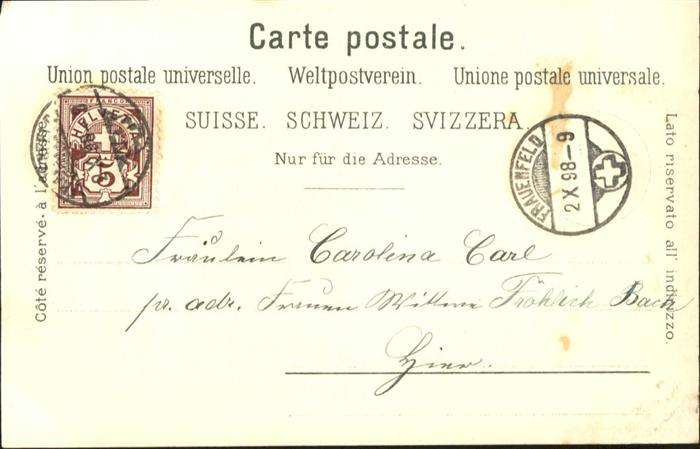 Carte postale.
Union postale universelle. Weltpostverein. Unione postale universale.
SUISSE. SCHWEIZ. SVIZZERA.
Nur für die Adresse.
Côté réservé à l'adresse.
Lato riservato all' indirizzo.
FRANCO
HELVETIA
FRAUENFELD
2 X 98-9
Fräulein Carolina Carl
pr. adr. Frauen Wittwe Fröhlich Bach
Hier.